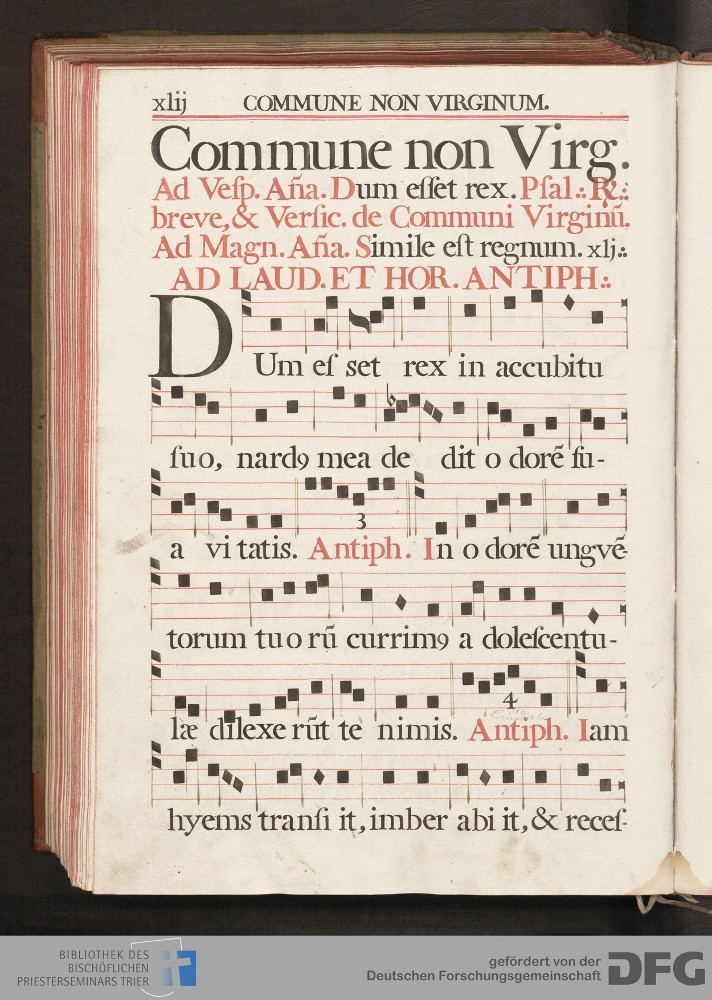 xlij COMMUNE NON VIRGINUM.
Commune non Virg.
Ad Veſp. Aña. Dum eſſet rex. Pſal.: ℟.:
breve, & Verſic. de Communi Virginũ.
Ad Magn. Aña. Simile eſt regnum. xlj.:
AD LAUD. ET HOR. ANTIPH.:
DUm eſ set rex in accubitu
ſuo, nardꝯ mea de dit o dorẽ ſu-
3
a vi tatis. Antiph. In o dorẽ ungvẽ-
torum tu o rũ currimꝯ a doleſcentu-
4
læ dilexe rũt te nimis. Antiph. Iam
hyems tranſi it, imber abi it, & receſ-
BIBLIOTHEK DES
BISCHÖFLICHEN
PRIESTERSEMINARS TRIER
gefördert von der
Deutschen Forschungsgemeinschaft DFG